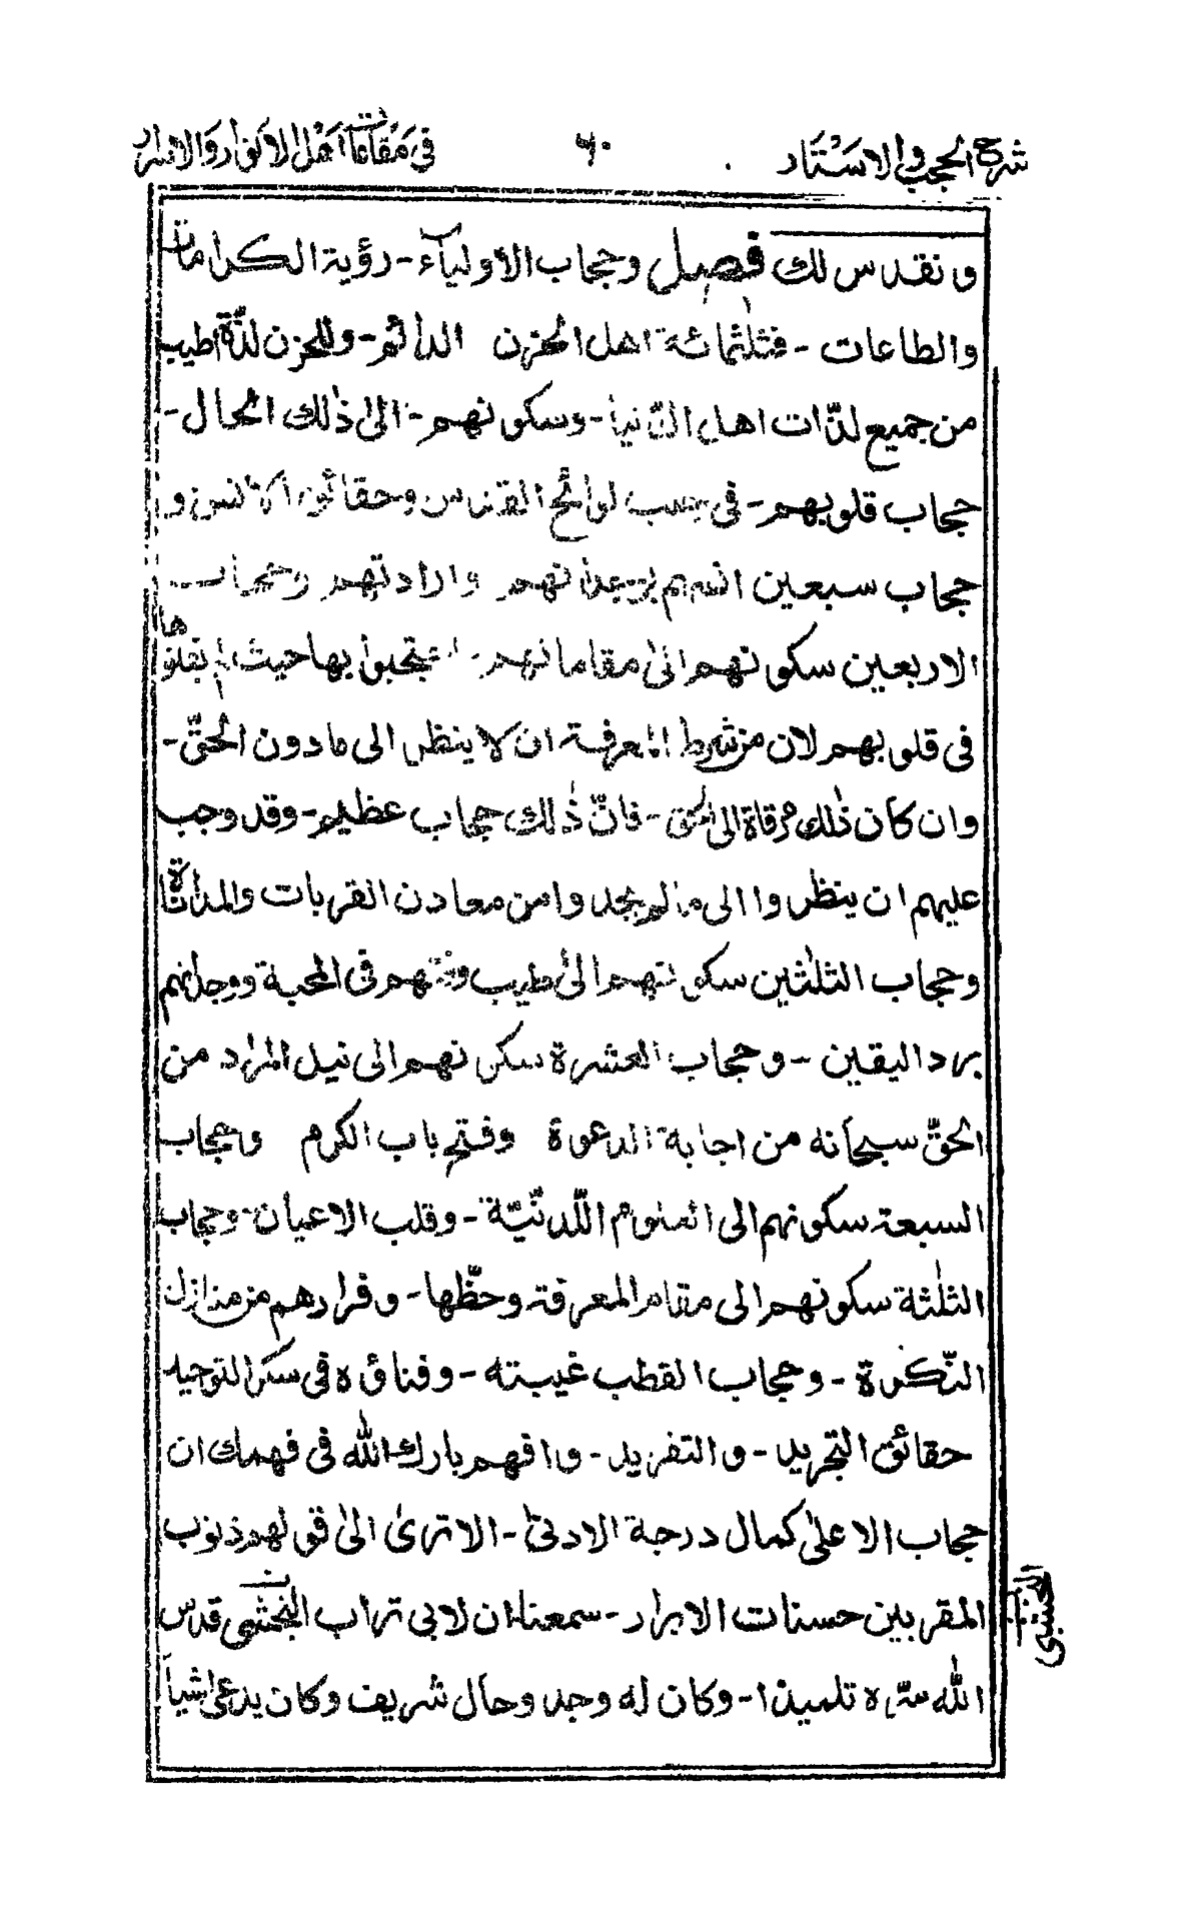 شرح الحجب والاستار
٦٠
في مقامات اهل الانوار والاسرار
ونقدس لك فصل وحجاب الاولياء - رؤية الكرامات
والطاعات - فثلثمائة اهل الحزن الدائم - وللحزن لذّة اطيب
من جميع لذّات اهل الدّنيا - وسكونهم - الىٰ ذٰلك الحال -
حجاب قلوبهم - فى لوائح القدس وحقائق الانس و
حجاب سبعين انسهم بوجدانهم وارادتهم وحجاب
الاربعين سكونهم الىٰ مقاماتهم - احتجبوا بها حيث ابقلوها
فى قلوبهم لان من شرط المعرفة ان لا ينظر الى مادون الحقّ -
وان كان ذٰلك مرقاة الى الحق - فانّ ذٰلك حجاب عظيم - وقد وجب
عليهم ان ينظروا الى مالم يجدوا من معادن القربات والمداناة
وحجاب الثلٰثين سكونهم الىٰ طيب وقتهم فى المحبة ووجدانهم
برد اليقين - وحجاب العشرة سكونهم الى نيل المراد من
الحقّ سبحانه من اجابة الدعوة وفتح باب الكرم وحجاب
السبعة سكونهم الى العلوم اللّدنّيّة - وقلب الاعيان - وحجاب
الثلٰثة سكونهم الى مقام المعرفة وحظّها - وفرارهم من منازل
النّكرة - وحجاب القطب غيبته - وفناؤه فى سكر التوحيد
حقائق التجريد - والتفريد - وافهم بارك الله فى فهمك ان
حجاب الاعلىٰ كمال درجة الادنىٰ - الا ترىٰ الىٰ قولهم ذنوب
المقربين حسنات الابرار - سمعنا ان لابى تراب النخشبى قدس
الله سرّه تلميذا - وكان له وجد وحال شريف وكان يدعى اشياً
النخشبى